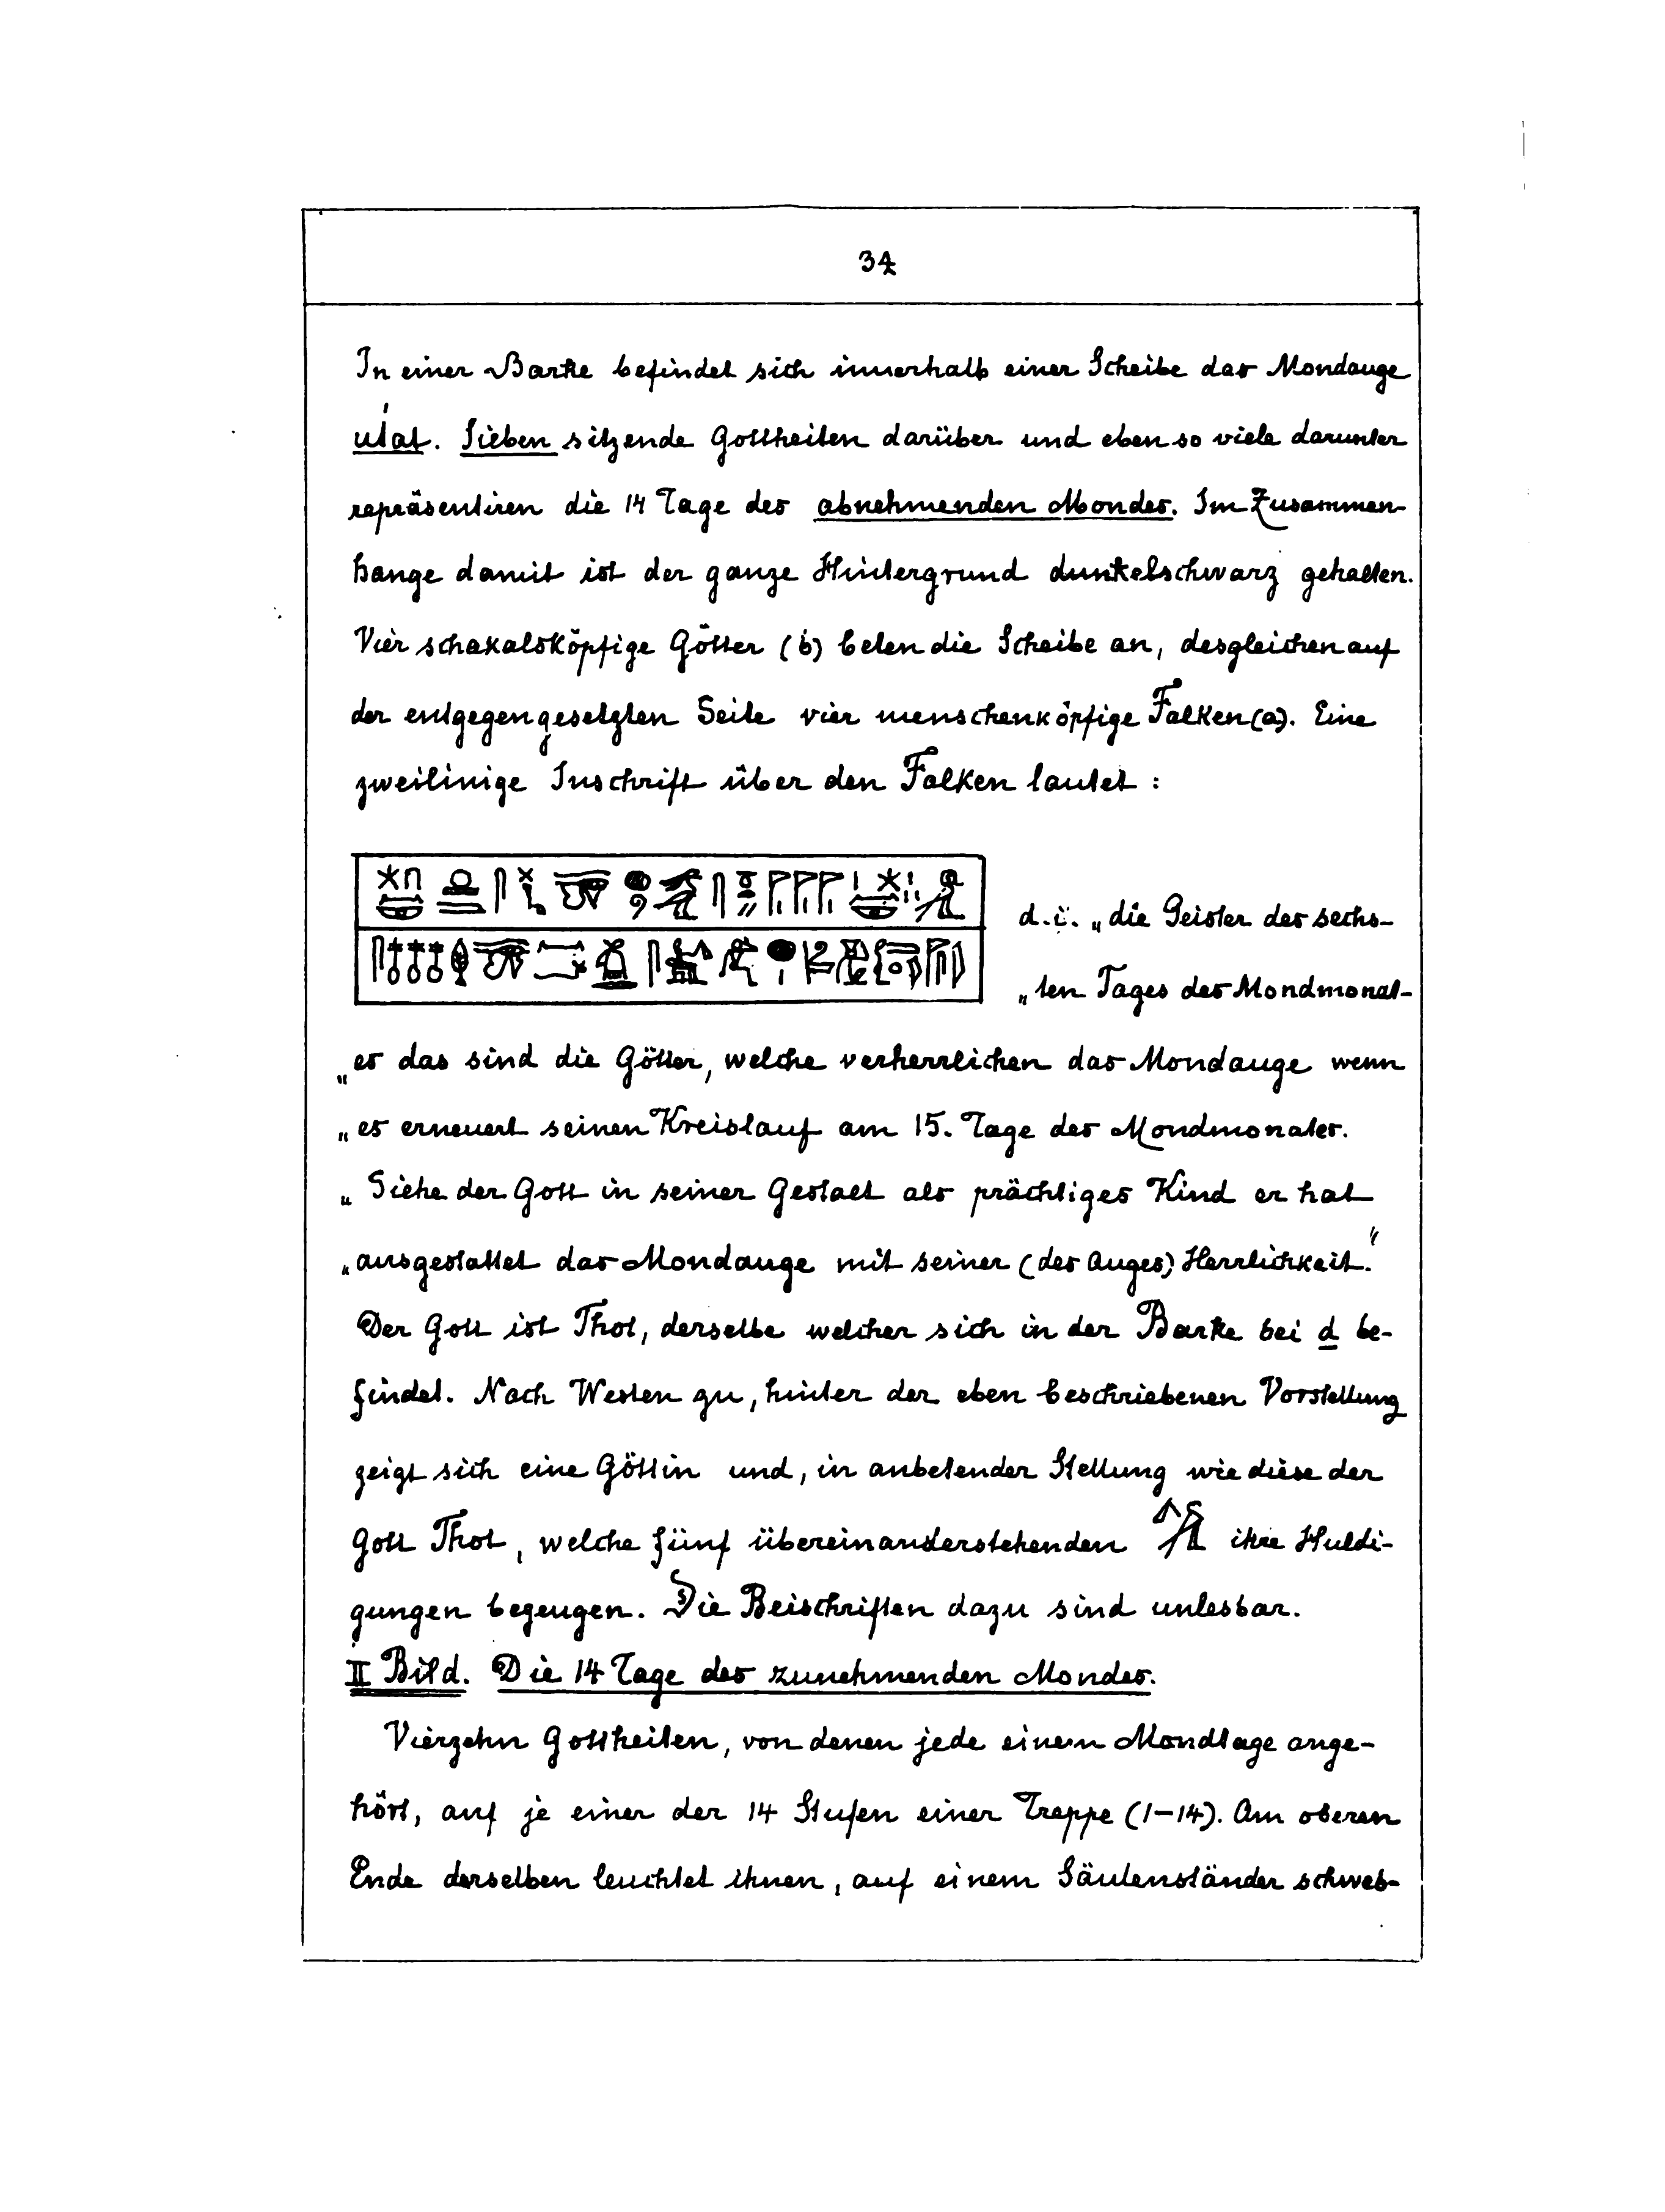 34
In einer Barke befindet sich innerhalb einer Scheibe das Mondauge
utat. Sieben sitzende Gottheiten darüber und eben so viele darunter
repräsentiren die 14 Tage des abnehmenden Mondes. Im Zusammen-
hange damit ist der ganze Hintergrund dunkelschwarz gehalten.
Vier schakalsköpfige Götter (b) beten die Scheibe an, desgleichen auf
der entgegengesetzten Seite vier menschenköpfige Falken (a). Eine
zweilinige Inschrift über den Falken lautet :
d. i. „die Geister des sechs-
„ten Tages des Mondmonat-
„es das sind die Götter, welche verherrlichen das Mondauge wenn
„es erneuert seinen Kreislauf am 15. Tage des Mondmonates.
„Siehe der Gott in seiner Gestalt als prächtiges Kind er hat
„ausgestattet das Mondauge mit seiner (des Auges) Herrlichkeit.“
Der Gott ist Thot, derselbe welcher sich in der Barke bei d be-
findet. Nach Westen zu, hinter der eben beschriebenen Vorstellung
zeigt sich eine Göttin und, in anbetender Stellung wie diese der
Gott Thot, welche fünf übereinanderstehenden ihre Huldi-
gungen bezeugen. Die Beischriften dazu sind unlesbar.
II Bild. Die 14 Tage des zunehmenden Mondes.
Vierzehn Gottheiten, von denen jede einem Mondtage ange-
hört, auf je einer der 14 Stufen einer Treppe (1–14). Am oberen
Ende derselben leuchtet ihnen, auf einem Säulenständer schweb-